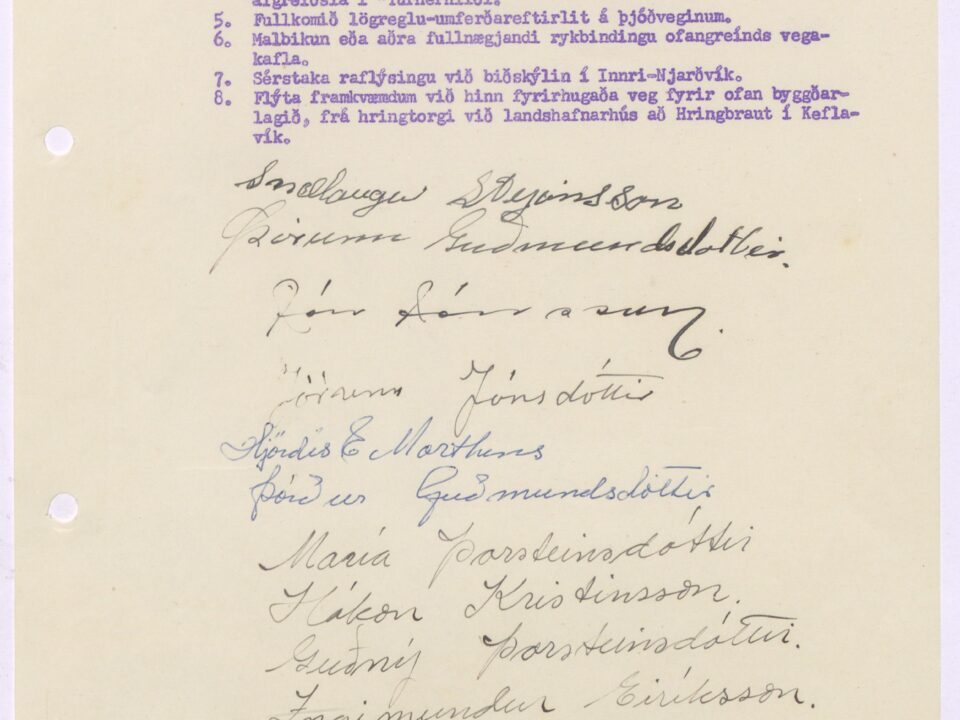 5. Fullkomið lögreglu-umferðareftirlit á þjóðveginum.
6. Malbikun eða aðra fullnægjandi rykbindingu ofangreinds vega-
kafla.
7. Sérstaka raflýsingu við biðskýlin í Innri-Njarðvík.
8. Flýta framkvæmdum við hinn fyrirhugaða veg fyrir ofan byggðar-
lagið, frá hringtorgi við landshafnarhús að Hringbraut í Kefla-
vík.
Þórunn Guðmundsdóttir.
Jón Jónsson.
Jórunn Jónsdóttir
Hjördís E Marthens
Guðmundsdóttir
María Þorsteinsdóttir
Hákon Kristinsson.
Guðný Þorsteinsdóttir.
Ingimundur Eiríksson.